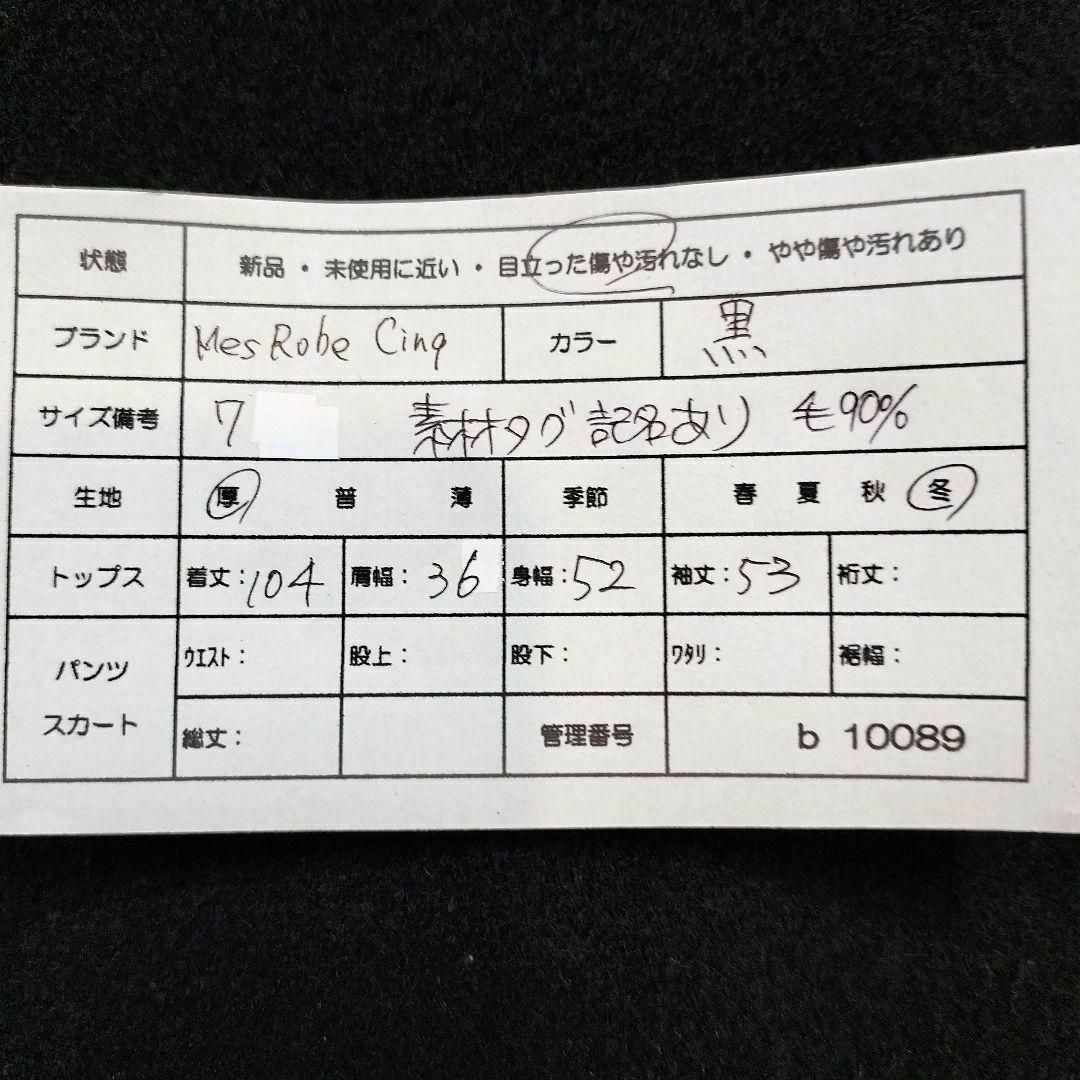 状態 新品 ・ 未使用に近い ・ 目立った傷や汚れなし ・ やや傷や汚れあり
ブランド Mes Robe Cinq カラー 黒
サイズ備考 7 素材タグ記名あり 毛90%
生地 厚 普 薄 季節 春 夏 秋 冬
トップス 着丈:104 肩幅:36 身幅:52 袖丈:53 裄丈:
パンツ スカート ｳｴｽﾄ: 股上: 股下: ﾜﾀﾘ: 裾幅:
総丈: 管理番号 b 10089